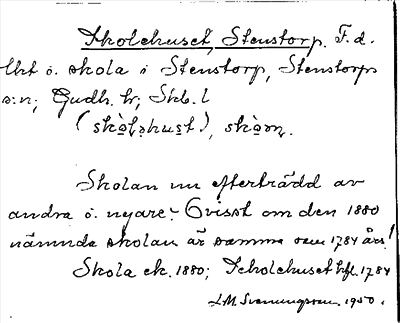 Skolehuset, Stenstorp. F.d.
lht o. skola i Stenstorp, Stenstorps
s:n; Gudh. hr; Skb. l
(skò̱lɘhu̱st), skò̱ɘn.
Skolan nu efterträdd av
andra o. nyare. Ovisst om den 1880
nämnda skolan är samma som 1784 års!
Skola ek. 1880; Scholehuset hfl. 1784
J.M. Svenungsson. 1950.